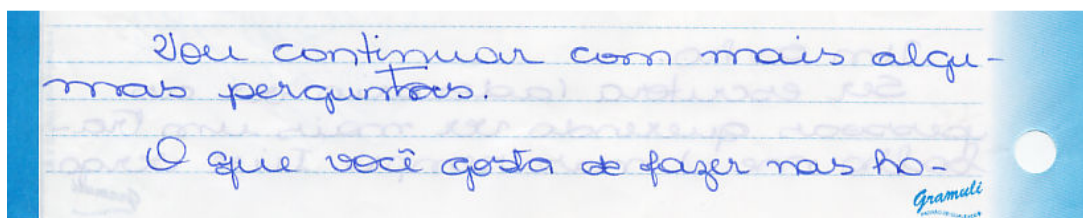 Vou continuar com mais algu-
mas perguntas.
O que você gosta de fazer nas ho-
Gramuli